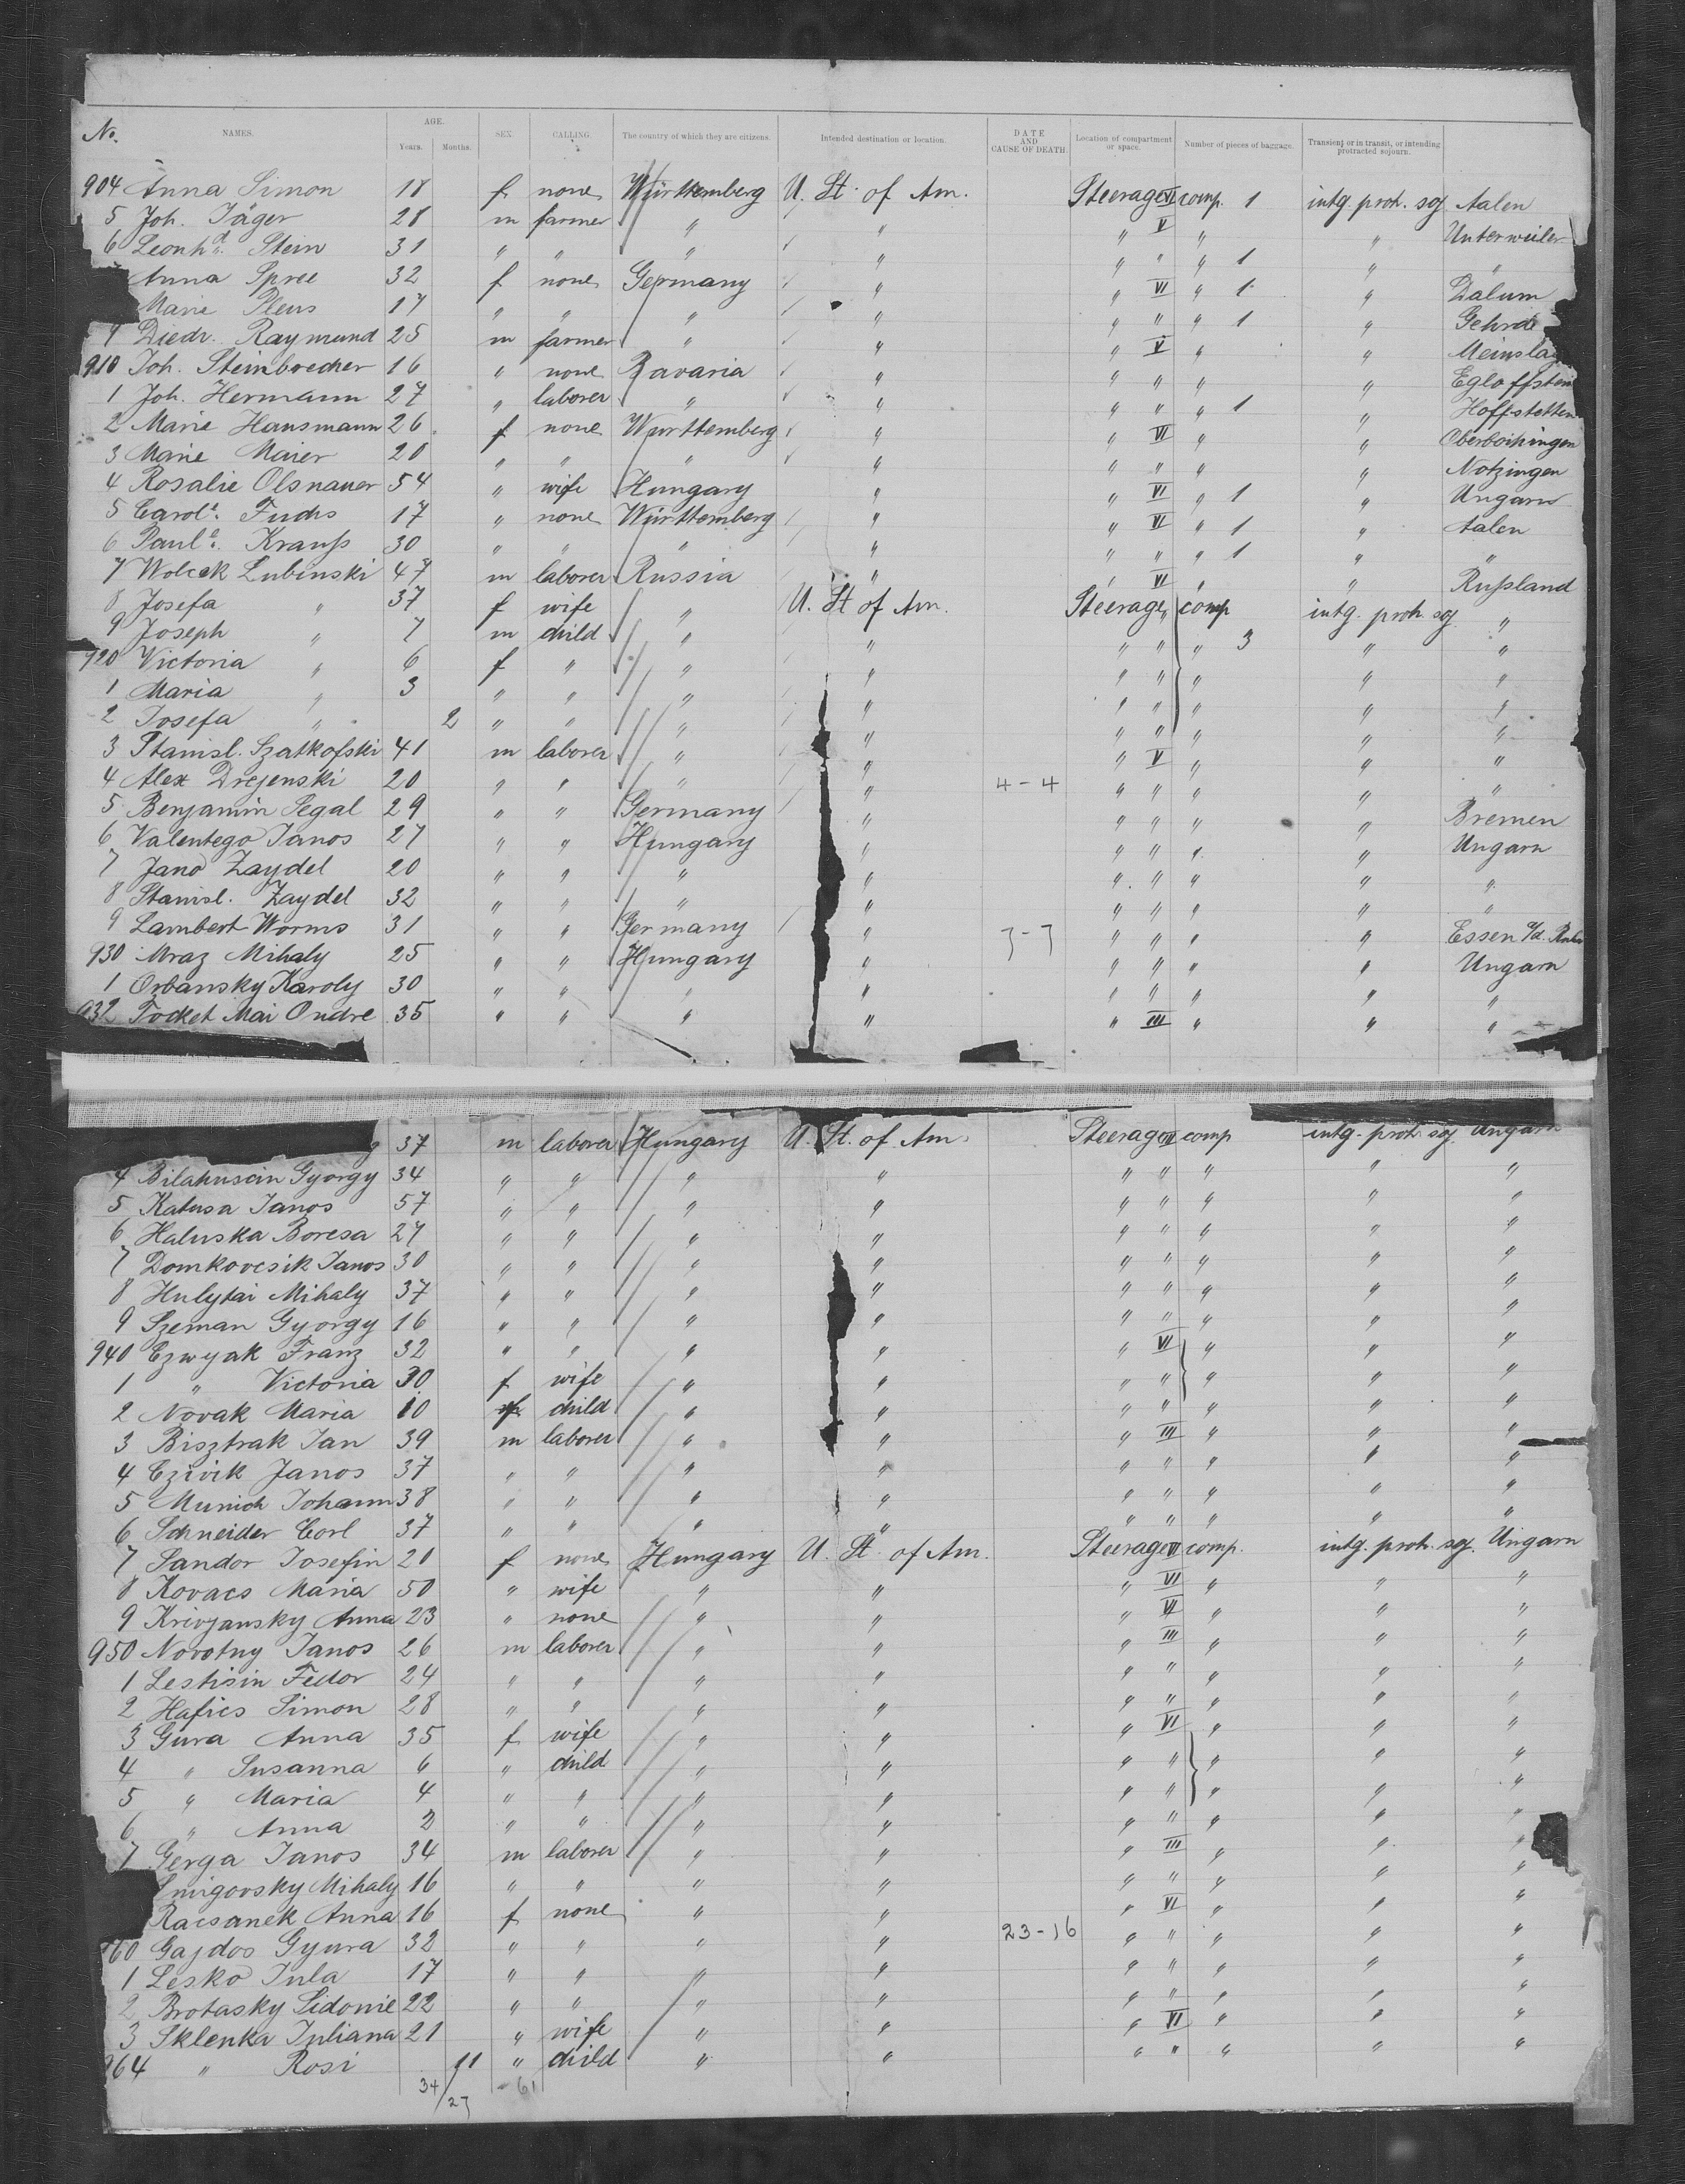 No. NAMES. AGE. Years. Months. SEX. CALLING. The country of which they are citizens. Intended destination or location. DATE AND CAUSE OF DEATH. Location of compartment or space. Number of pieces of baggage. Transient or in transit, or intending protracted sojourn.
904 Anna Simon 18 f none Württemberg U. St. of Am. Steerage VI comp. 1 intg. protr. soj Aalen
5 Joh. Jäger 28 m farmer " " " V " " Unterweiler
6 Leonhd. Stein 31 " " " " " " " 1 " "
Anna Spree 32 f none Germany " " VI " 1 " Dalum
Marie Pleus 17 " " " " " " " 1 " Gehrde
9 Diedr. Raymund 25 m farmer " " " V " "
910 Joh. Steinboecher 16 " none Bavaria " " " " " Egloffstein
1 Joh. Hermann 27 " laborer " " " " " 1 " Hoffstetten
2 Marie Hausmann 26 f none Württemberg " " VI " " Oberboihingen
3 Marie Maier 20 " " " " " " " " Notzingen
4 Rosalie Olsnauer 54 " wife Hungary " " VI " 1 " Ungarn
5 Carole. Fuchs 17 " none Württemberg " " VI " 1 " Aalen
6 Paule. Krauß 30 " " " " " " " 1 " "
7 Wolcek Lubinski 47 m laborer Russia " " VI " " Rußland
8 Josefa " 37 f wife " U. St of Am. Steerage " comp intg. protr. soj "
9 Joseph " 7 m child " " " " " 3 " "
920 Victoria " 6 f " " " " " " " "
1 Maria " 3 " " " " " " " " "
2 Josefa " 2 " " " " " " " " "
3 Stanisl. Szatkofski 41 m laborer " " " V " " "
4 Alex Drejenski 20 " " " " 4-4 " " " " "
5 Benjamin Segal 29 " " Germany " " " " " Bremen
6 Valentego Janos 27 " " Hungary " " " " " Ungarn
7 Jano Zaydel 20 " " " " " " " " "
8 Stanisl. Zaydel 32 " " " " " " " " "
9 Lambert Worms 31 " " Germany " 7-7 " " " " Essen a/d. Ruhr
930 Mraz Mihaly 25 " " Hungary " " " " " Ungarn
1 Orbansky Karoly 30 " " " " " " " " "
932 Focket Mai Ondre 35 " " " " " III " " "
37 m laborer Hungary U. St. of Am. Steerage III comp intg. protr. soj Ungarn
4 Bilahuscin Gyorgy 34 " " " " " " " " "
5 Katusa Janos 57 " " " " " " " " "
6 Haluska Boresa 27 " " " " " " " " "
7 Domkovcsik Janos 30 " " " " " " " " "
8 Hulytai Mihaly 37 " " " " " " " " "
9 Szeman Gyorgy 16 " " " " " " " " "
940 Czwyak Franz 32 " " " " " VI " " "
1 " Victoria 30 f wife " " " " " " "
2 Novak Maria 10 f child " " " " " " "
3 Bisztrak Jan 39 m laborer " " " III " " "
4 Czivik Janos 37 " " " " " " " " "
5 Munich Johann 38 " " " " " " " " "
6 Schneider Carl 37 " " " " " " " " "
7 Sandor Josefin 20 f none Hungary U. St. of Am. Steerage VI comp. intg. protr. soj. Ungarn
8 Kovacs Maria 50 " wife " " " VI " " "
9 Krivjansky Anna 23 " none " " " VI " " "
950 Novotny Janos 26 m laborer " " " III " " "
1 Lestisin Fedor 24 " " " " " " " " "
2 Hafics Simon 28 " " " " " " " " "
3 Gura Anna 35 f wife " " " VI " " "
4 " Susanna 6 " child " " " " " " "
5 " Maria 4 " " " " " " " " "
6 " Anna 2 " " " " " " " " "
7 Gerga Janos 34 m laborer " " " III " " "
Smigovsky Mihaly 16 " " " " " " " " "
Racsanek Anna 16 f none " " " VI " " "
960 Gajdos Gyura 32 " " " " 23-16 " " " " "
1 Lesko Jula 17 " " " " " " " " "
2 Brotasky Sidonie 22 " " " " " " " " "
3 Sklenka Juliana 21 " wife " " " VI " " "
964 " Rosi 11 " child " " " " " " "
34/27 - 61